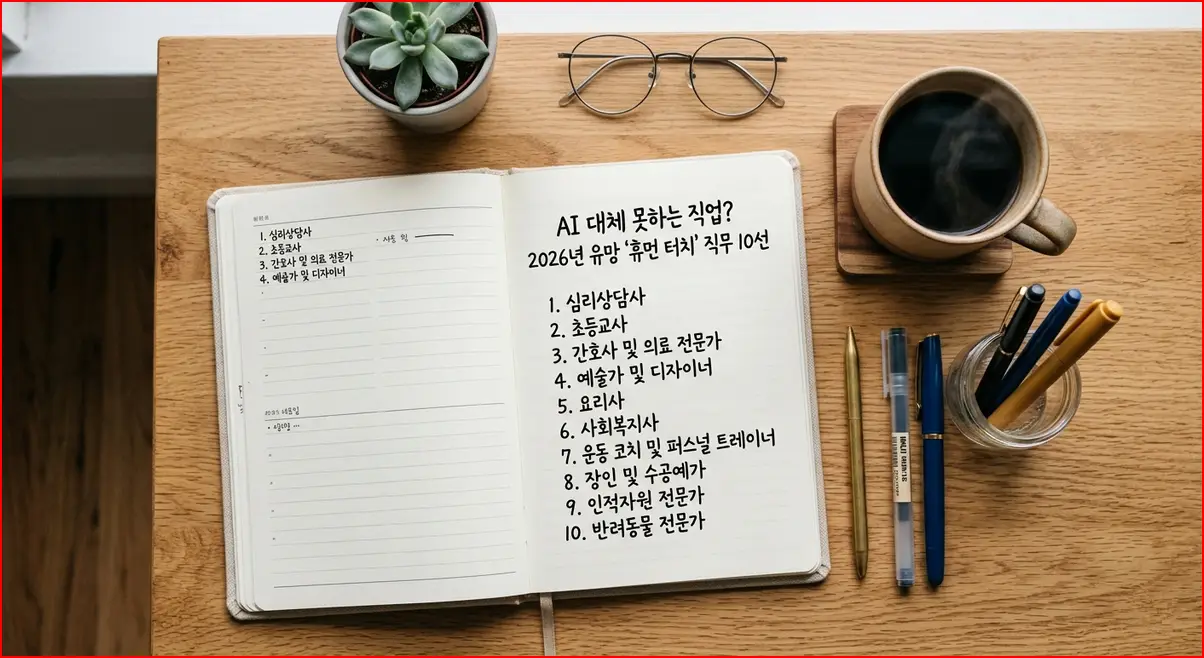 1. 심리상담사
2. 초등교사
3. 간호사 및 의료 전문가
4. 예술가 및 디자이너
AI 대체 못하는 직업?
2026년 유망 ‘휴먼 터치’ 직무 10선
1. 심리상담사
2. 초등교사
3. 간호사 및 의료 전문가
4. 예술가 및 디자이너
5. 요리사
6. 사회복지사
7. 운동 코치 및 퍼스널 트레이너
8. 장인 및 수공예가
9. 인적자원 전문가
10. 반려동물 전문가